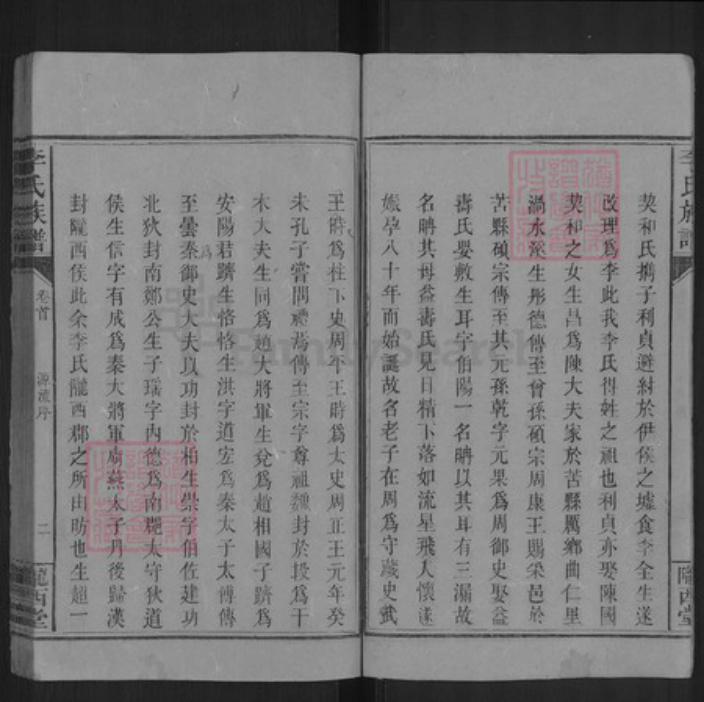 契和氏攜子利貞避紂於伊侯之墟食李全生遂
改理爲李此我李氏得姓之祖也利貞亦娶陳國
契和之女生昌爲陳大夫家於苦縣厲鄉曲仁里
渦水派生彤德傳至曾孫碩宗周康王賜采邑於
苦縣碩宗傳至其元孫乾字元果爲周御史娶益
壽氏嬰敷生耳字伯陽一名聃以其耳有三漏故
名聃其母益壽氏見日精下落如流星飛人懷遂
娠孕八十年而始誕故名老子在周爲守藏史武
王時爲柱下史周平王時爲太史周正王元年癸
未孔子嘗問禮焉傳至宗字尊祖魏封於段爲干
木大夫生同爲趙大將軍生兌爲趙相國子躋爲
安陽君躋生恪恪生洪字道宏爲秦太子太傅傳
至曇秦御史大夫以功封於柏生崇字伯佐建功
爲
北狄封南鄭公生子瑤字內德爲南郡太守狄道
侯生信字有成爲秦大將軍虜燕太子丹後歸漢
封隴西侯此余李氏隴西郡之所由昉也生超一
李氏族譜
卷首
源流序
二
隴西堂
李氏族譜
隴西堂
FamilySearch